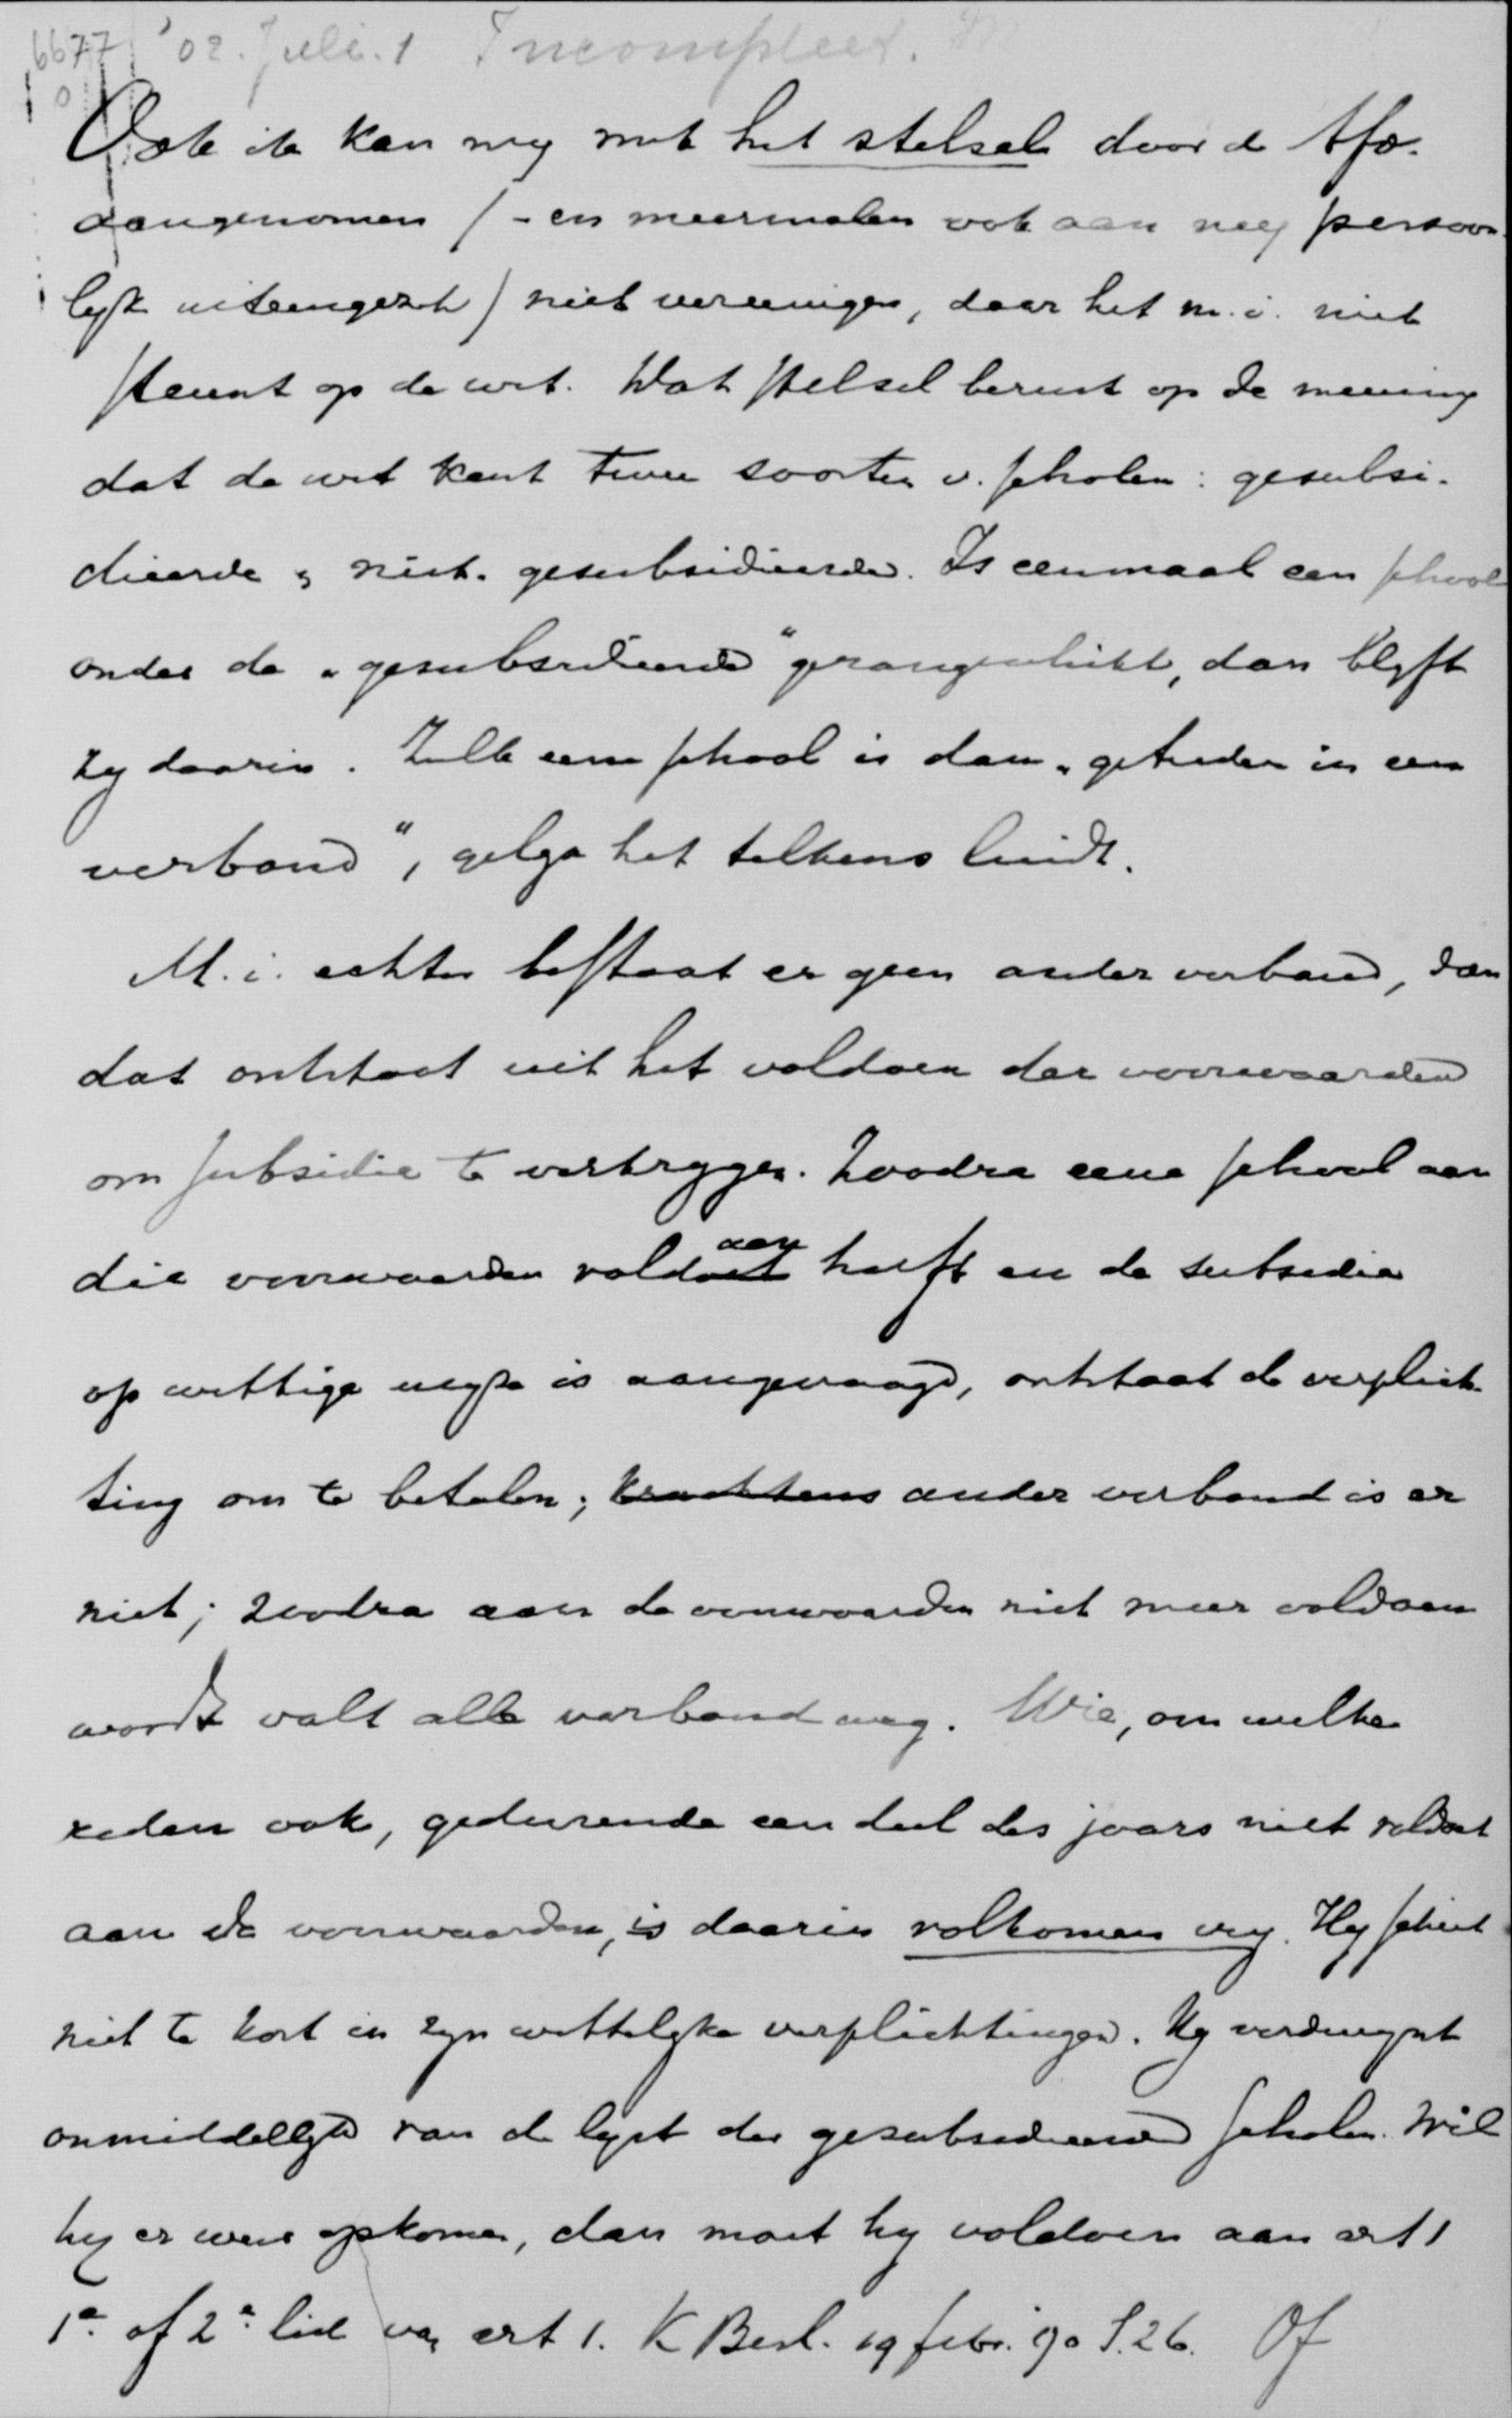 6677
0
'02. Juli. 1 Incompleet.
Ook ik kan mij met het stelsel door de Afd.
aangenomen /- en meermalen ook aan mij persoon-
lijk uiteengezet / niet vereenigen, daar het m.i. niet
steunt op de wet. Dat stelsel berust op de meening
dat de wet kent twee soorten v. scholen: gesubsi-
dieerde & niet-gesubsidieerde. Is eenmaal een school
onder de "gesubsidieerde" gerangschikt, dan blijft
zij daarin. Zulk eene school is dan "getreden in een
verband", gelijk het telkens luidt.
M.i. echter bestaat er geen ander verband, dan
dat ontstaat uit het voldoen der voorwaarden
om subsidie te verkrijgen. Zoodra eene school aan
die voorwaarden voldaan heeft en de subsidie
op wettige wijze is aangevraagd, ontstaat de verplich-
ting om te betalen; krachtens ander verband is er
niet; zoodra aan de voorwaarden niet meer voldaan
wordt valt alle verband weg. Wie, om welke
reden ook, gedurende een deel des jaars niet voldoet
aan de voorwaarden, is daarin volkomen vrij. Hij schiet
niet te kort in zijn wettelijke verplichtingen. Hij verdwijnt
onmiddellijk van de lijst der gesubsidieerde scholen. Wil
hij er weer opkomen, dan moet hij voldoen aan art 1
1e. of 2e. lid van art 1. K Besl. 19 febr. 90 S. 26. Of